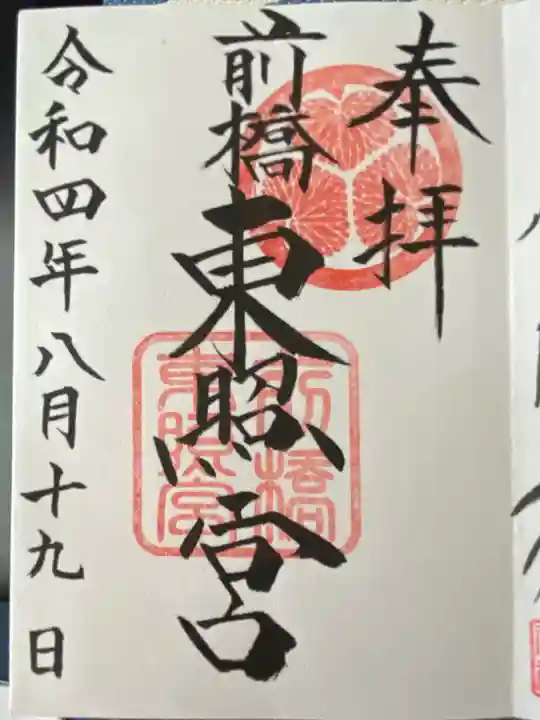 奉拝
前橋東照宮
前橋
東照宮
令和四年八月十九日